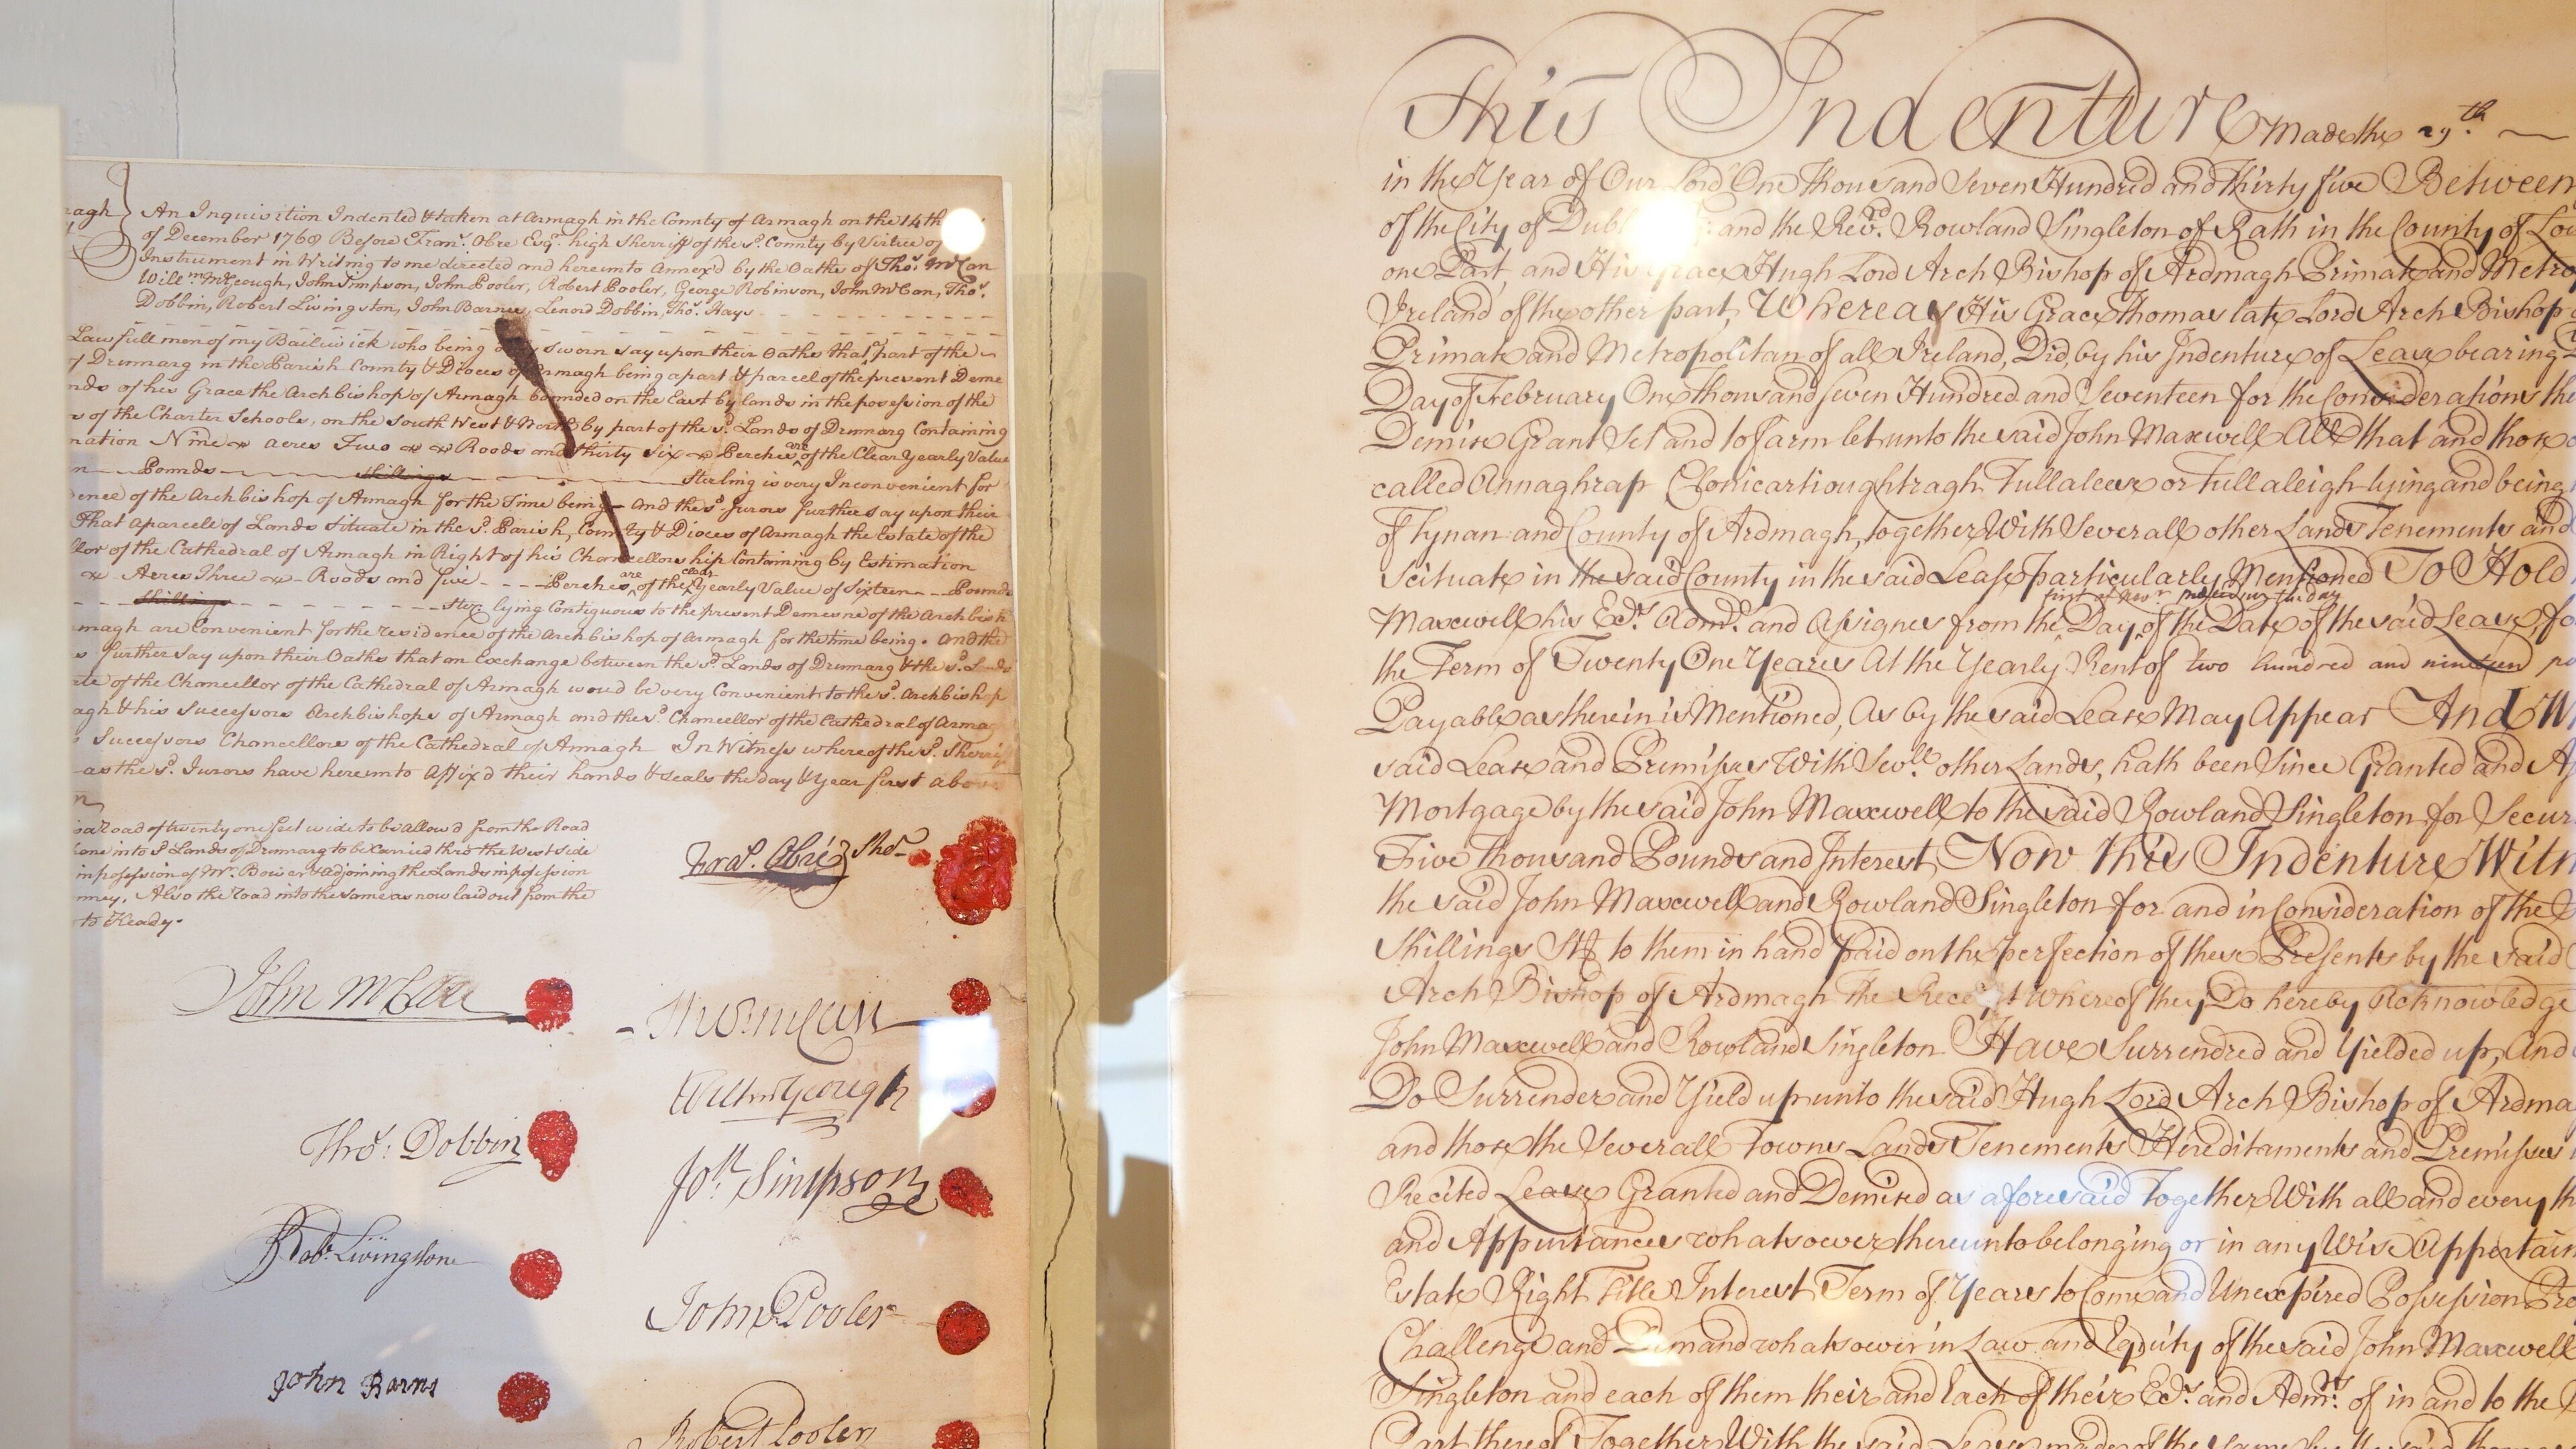 agh} An Inquisition Indented & taken at Armagh in the County of Armagh on the 14th
of December 1769 Before Fran.s Obre Esq.r high Sherriff of the s.d County by Virtue of
Instrument in Writing to me directed and hereunto Annex'd by the Oaths of Tho.s McCan
Will.m McGeough, John Simpson, John Pooler, Robert Pooler, George Robinson, John McCan, Tho.s
Dobbin, Robert Livingston, John Barnes, Lenord Dobbin, Tho.s Hays
Lawfull men of my Bailiwick who being sworn say upon their Oaths that part of the
of Drumarg in the Parish County & Dioces of Armagh being a part & parcel of the present Deme
nds of his Grace the Archbishop of Armagh bounded on the East by lands in the posession of the
s of the Charter Schools, on the South West & North by part of the s.d Lands of Drumarg Containing
mation Nine acres Two Roods and thirty Six Perches are of the Clear Yearly Value
n Pounds shillings Sterling is very Inconvenient for
dence of the Archbishop of Armagh for the Time being - And the s.d Jurors further say upon their
That a parcell of Lands Situate in the s.d Parish, County & Dioces of Armagh the Estate of the
llor of the Cathedral of Armagh in Right of his Chancellorship Containing by Estimation
Acres Three Roods and five - - - - Perches are of the clear Yearly Value of Sixteen - - Pounds
Shillings - - - - Ster lying Contiguous to the present Demesne of the Archbish
magh are Convenient for the residence of the Archbishop of Armagh for the time being. And the
s further Say upon their Oaths that an Exchange between the s.d Lands of Drumarg & the s.d Lands
ate of the Chancellor of the Cathedral of Armagh woud be very Convenient to the s.d Archbishop
agh & his Successors Archbishops of Armagh and the s.d Chancellor of the Cathedral of Arma
s Successors Chancellors of the Cathedral of Armagh In Witness whereof the s.d Sherriff
as the s.d Jurors have hereunto Affix'd their hands & seals the day & Year first above
n
is a Road of twenty one feet wide to be allow'd from the Road
Lane into s.d Lands of Drumarg to be Carried thro the West side
in posession of Mr. Bower & adjoining the Lands in posession
nney. Also the road into the same as now laid out from the
to Keady.
Fra.s Obré} She.
John McCan
Tho.s McCan
Will McGeough
Tho.s Dobbin
Jo.n Simpson
Rob.t Livingston
John Pooler
John Barns
Robert Pooler
This Indenture Made the 29.th
in the Year of Our Lord One thousand Seven Hundred and Thirty five Between
of the City of Dubl and the Rev.d Rowland Singleton of Rath in the County of Lou
one Part, and His Grace Hugh Lord Arch Bishop of Ardmagh Primate and Metro
Ireland of the other part, Whereas His Grace Thomas late Lord Arch Bishop
Primate and Metropolitan of all Ireland, Did, by his Indenture of Lease bearing
Day of February One thousand seven Hundred and Seventeen for the Considerations the
Demise Grant Set and to farm let unto the said John Maxwell All that and those
called Annaghrap Clonicartioughtragh Tullaleese or Tullaleigh lying and being
of Tynan and County of Ardmagh, together With Severall other Lands Tenements and
Scituate in the said County in the said Lease particularly Mentioned To Hold
Maxwell his Ex.rs Adm.rs and Assignes from the Day of the Date of the said Lease, fo
the Term of Twenty One Years At the Yearly Rent of two hundred and nineteen po
Payable as therein is Mentioned, As by the said Lease May Appear And W
said Lease and Premisses With Sev.ll other Lands, hath been Since Granted and A
Mortgage by the said John Maxwell to the said Rowland Singleton for Secur
Five thousand Pounds and Interest, Now this Indenture Witn
the said John Maxwell and Rowland Singleton for and in Consideration of the
Shillings St to them in hand Paid on the perfection of these Presents by the said
Arch Bishop of Ardmagh The Receipt Whereof they Do hereby Acknowledge
John Maxwell and Rowland Singleton Have Surrendred and Yielded up, And
Do Surrender and Yield up unto the said Hugh Lord Arch Bishop of Ardma
and those the Severall Towns Lands Tenements Hereditaments and Premisses
Recited Lease Granted and Demised as aforesaid Together With all and every th
and Appurtances whatsoever thereunto belonging or in any Wise Appertain
Estate Right Title Interest Term of Years to Come and Unexpired Possession Pro
Challenge and Demand whatsoever in Law and Equity of the said John Maxwell
Singleton and each of them their and Each of their Ex.rs and Adm.rs of in and to the
Part thereof Together With the said Lease made of the same